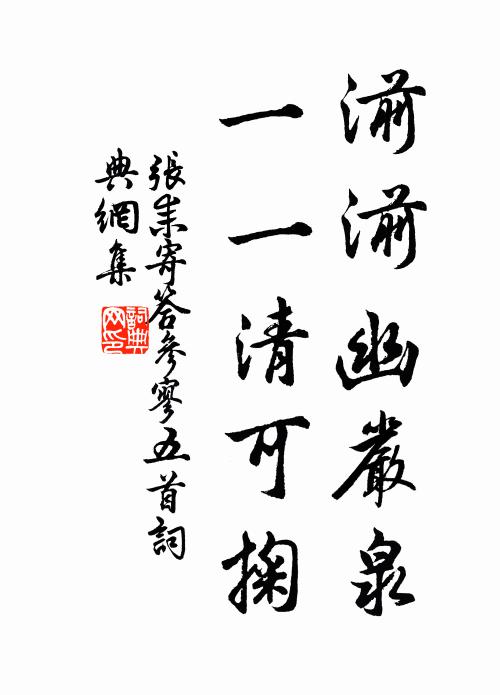 湔湔幽巖泉
一一清可掬
張耒寄答參寥五首詞
典網集
詞典
网印